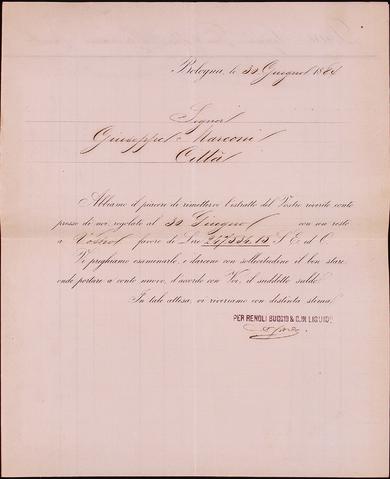 Bologna, le 30 Giugno 1884
Signor
Giuseppe Marconi
Città
Abbiamo il piacere di rimettervi l'estratto del Vostro riverito conto
presso di noi, regolato al 30 Giugno con un resto
a Vostro favore di Lire 247,334.15 S. E. ed O.
Vi preghiamo esaminarlo, e darcene con sollecitudine il ben stare,
onde portare a conto nuovo, d'accordo con Voi, il suddetto saldo.
In tale attesa, vi riveriamo con distinta stima.
PER RENOLI BUGGIO & C. IN LIQUIDE